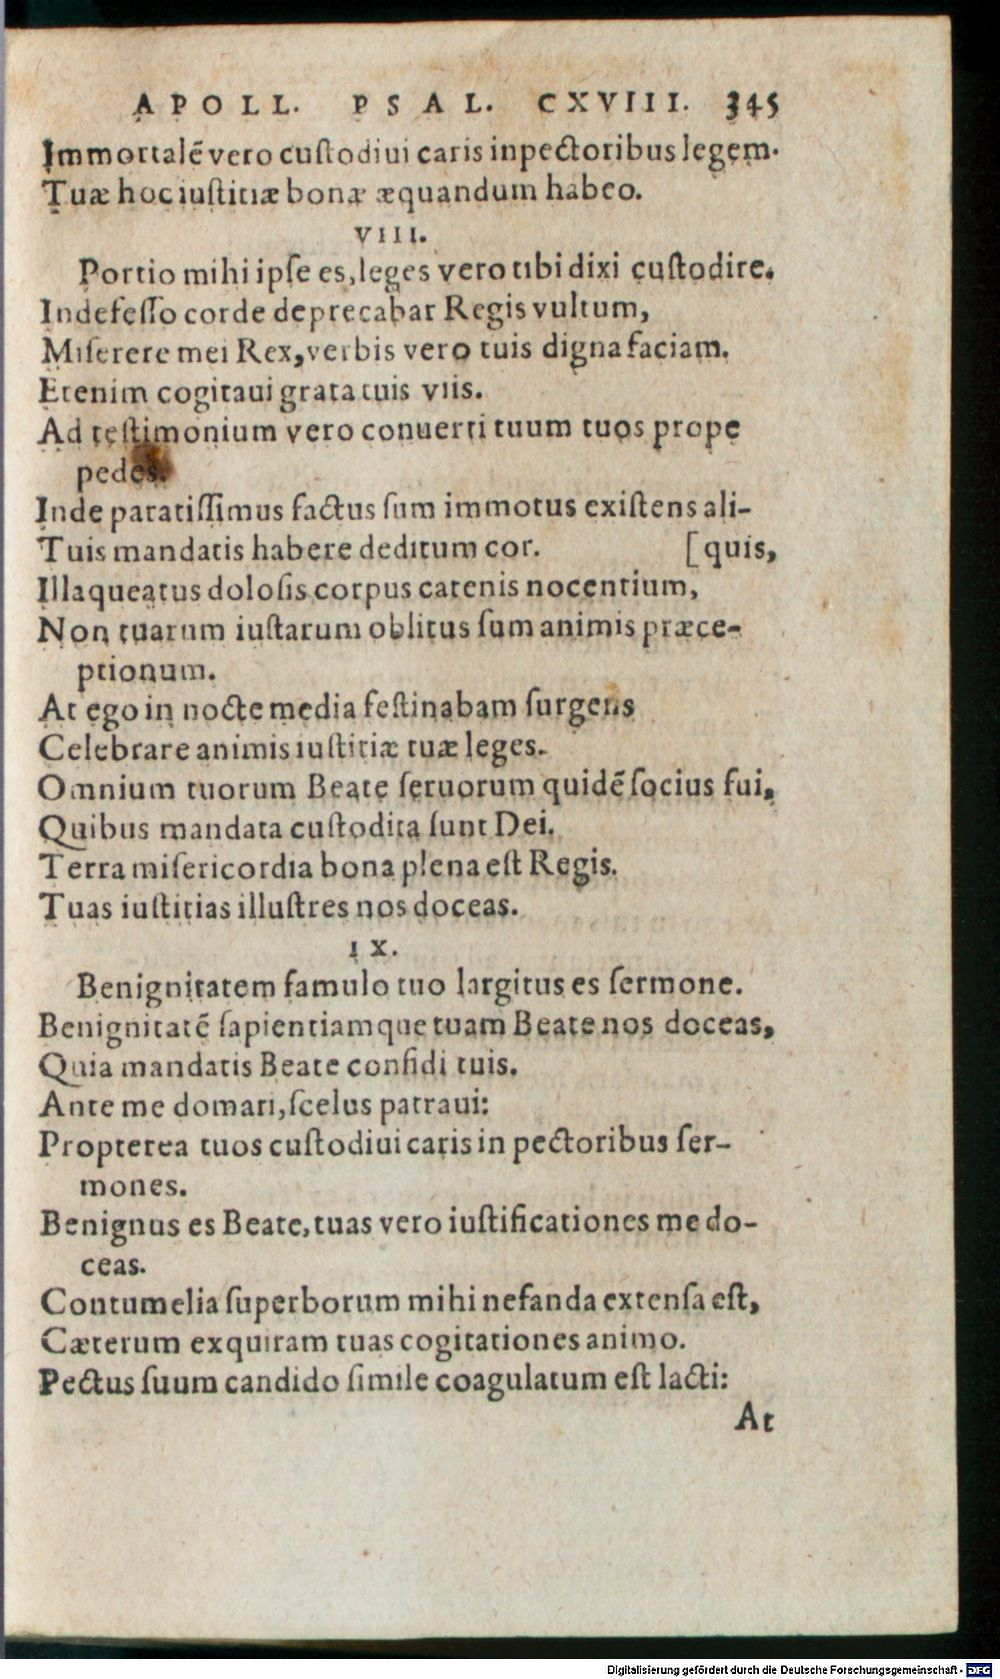 APOLL. PSAL. CXVIII. 345
Immortalē vero cuſtodiui caris inpectoribus legem.
Tuæ hoc iuſtitiæ bonæ æquandum habeo.
VIII.
Portio mihi ipſe es, leges vero tibi dixi cuſtodire.
Indefeſſo corde deprecabar Regis vultum,
Miſerere mei Rex, verbis vero tuis digna faciam.
Etenim cogitaui grata tuis viis.
Ad teſtimonium vero conuerti tuum tuos prope
pedes.
Inde paratiſſimus factus ſum immotus exiſtens ali-
Tuis mandatis habere deditum cor. [quis,
Illaqueatus doloſis corpus catenis nocentium,
Non tuarum iuſtarum oblitus ſum animis præce-
ptionum.
At ego in nocte media feſtinabam ſurgens
Celebrare animis iuſtitiæ tuæ leges.
Omnium tuorum Beate ſeruorum quidē ſocius fui,
Quibus mandata cuſtodita ſunt Dei.
Terra miſericordia bona plena eſt Regis.
Tuas iuſtitias illuſtres nos doceas.
IX.
Benignitatem famulo tuo largitus es ſermone.
Benignitatē ſapientiamque tuam Beate nos doceas,
Quia mandatis Beate confidi tuis.
Ante me domari, ſcelus patraui:
Propterea tuos cuſtodiui caris in pectoribus ſer-
mones.
Benignus es Beate, tuas vero iuſtificationes me do-
ceas.
Contumelia ſuperborum mihi nefanda extenſa eſt,
Cæterum exquiram tuas cogitationes animo.
Pectus ſuum candido ſimile coagulatum eſt lacti:
At
Digitalisierung gefördert durch die Deutsche Forschungsgemeinschaft - DFG